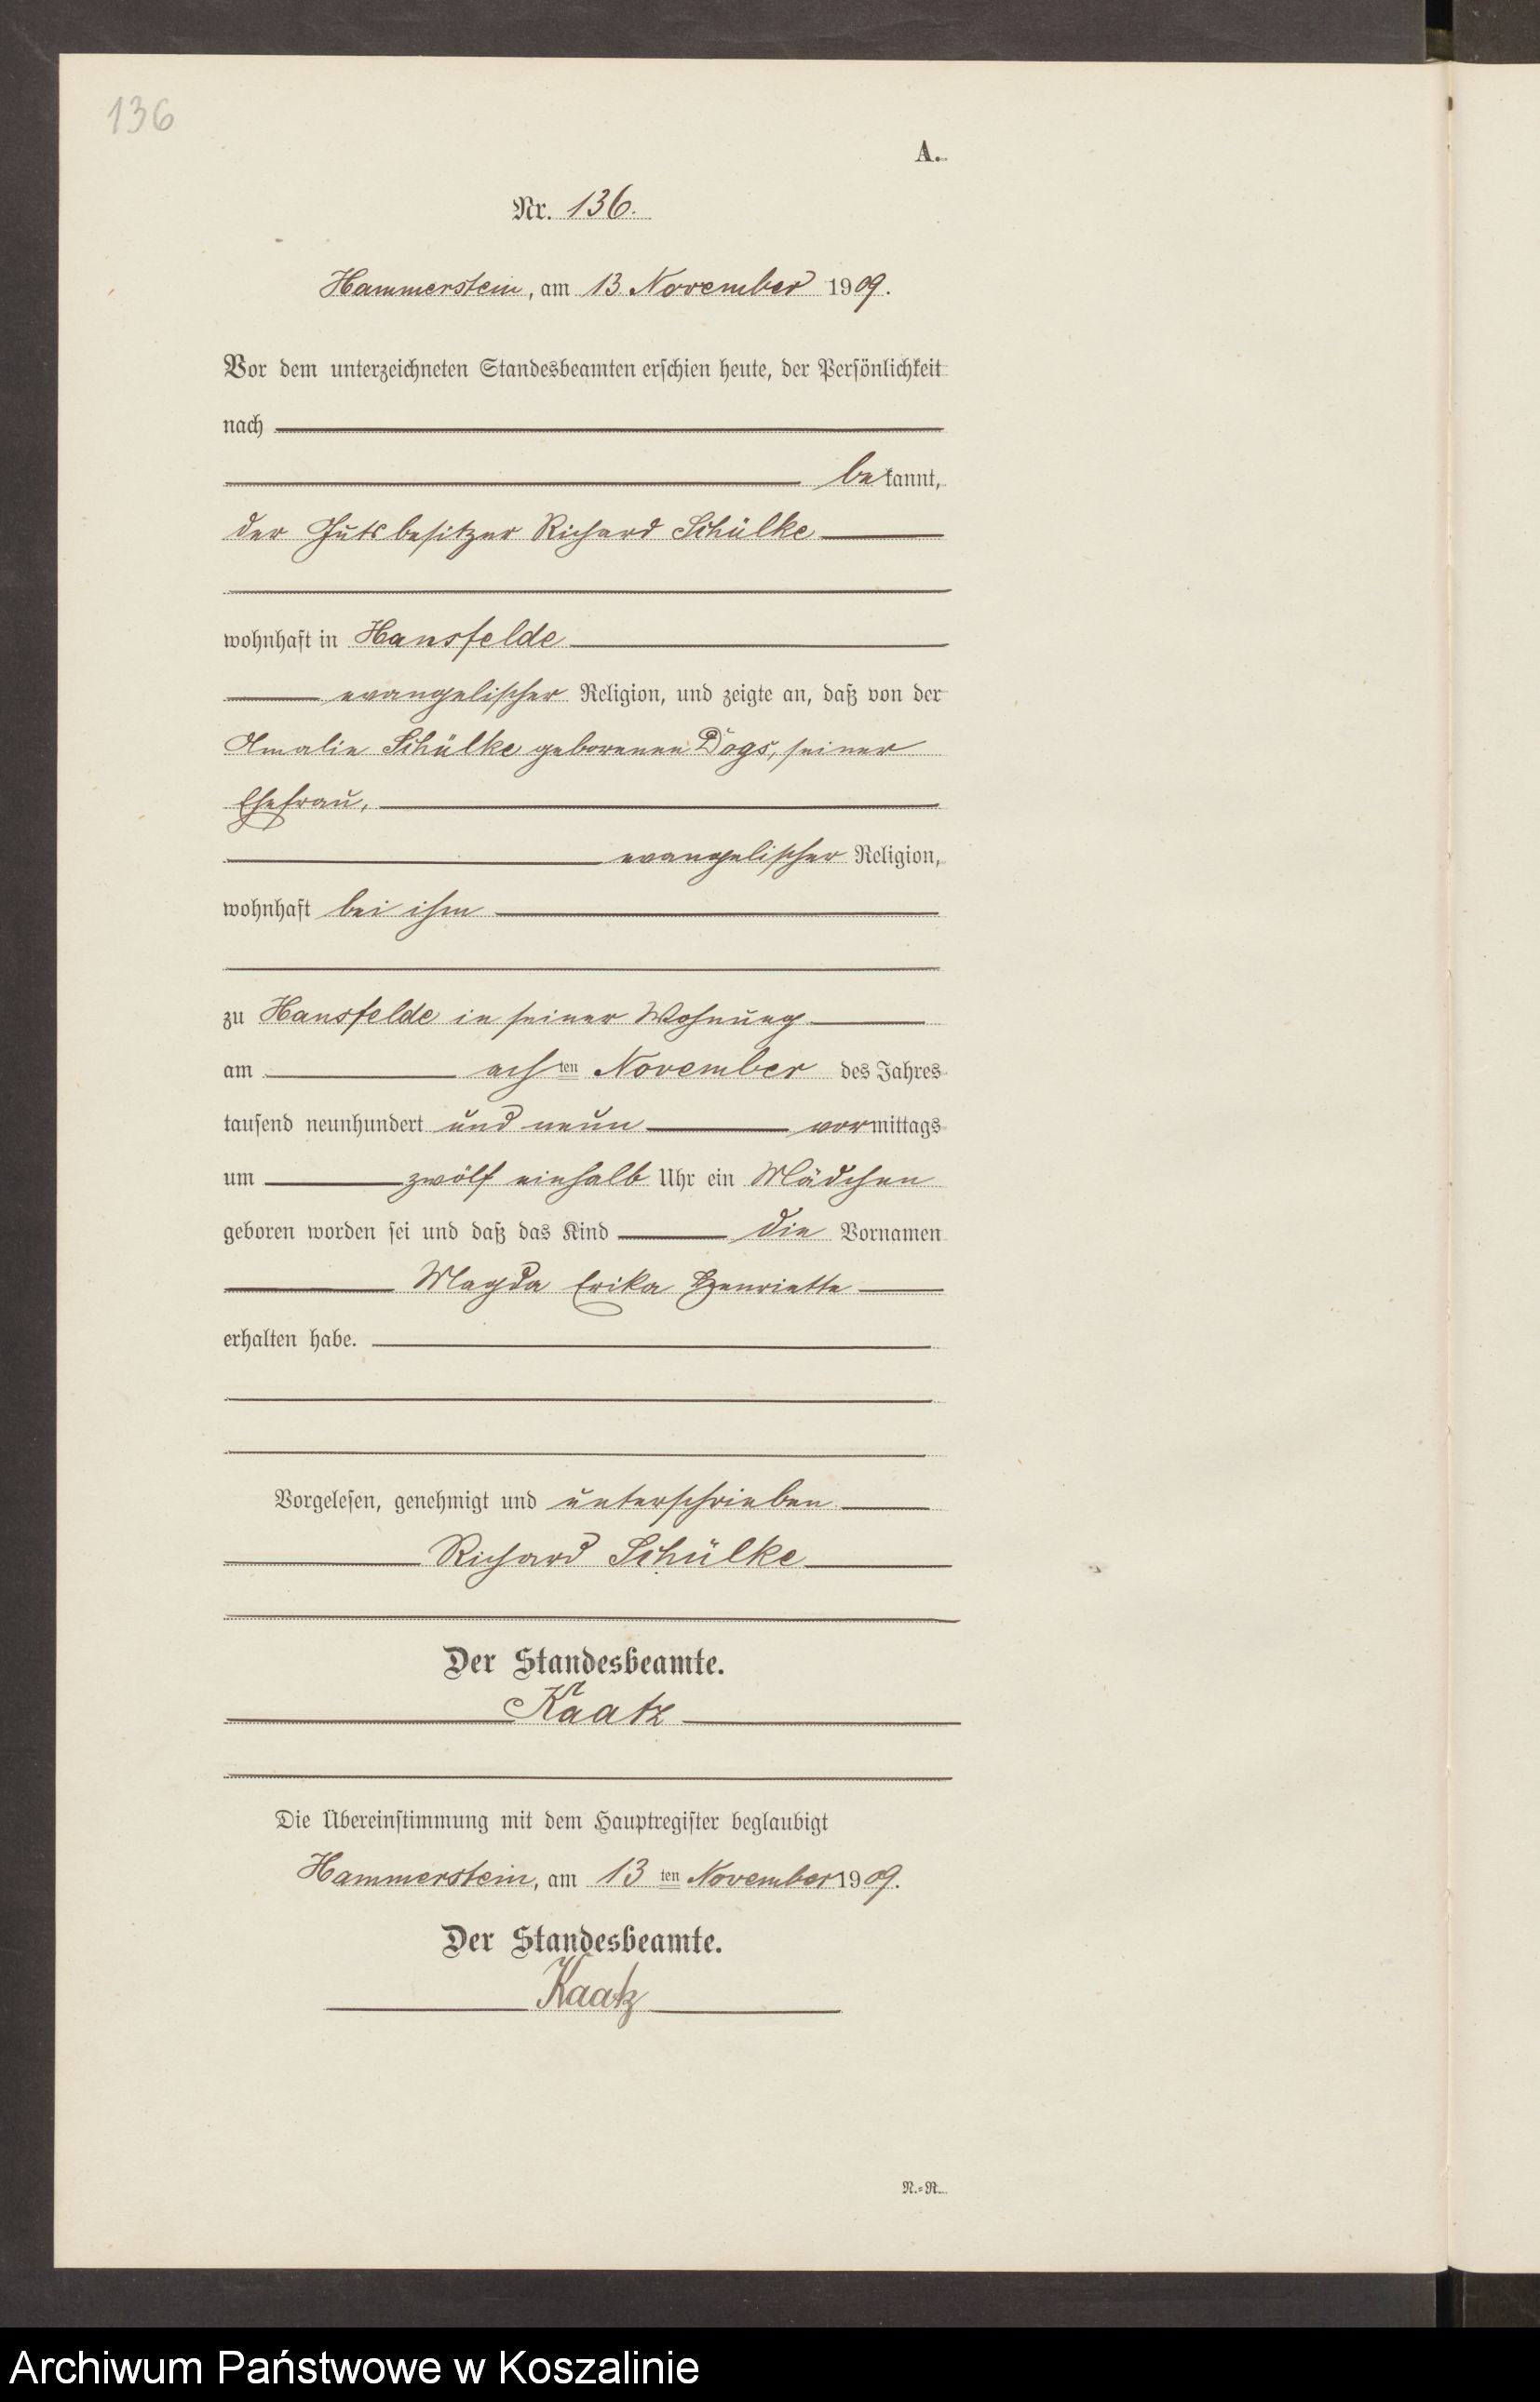 136
A.
Nr. 136.
Hammerstein, am 13. November 1909.
Vor dem unterzeichneten Standesbeamten erschien heute, der Persönlichkeit
nach
bekannt,
der Gutsbesitzer Richard Schülke
wohnhaft in Hansfelde
evangelischer Religion, und zeigte an, daß von der
Amalie Schülke geborenen Dogs, seiner
Ehefrau,
evangelischer Religion,
wohnhaft bei ihm
zu Hansfelde in seiner Wohnung
am achten November des Jahres
tausend neunhundert und neun vormittags
um zwölf einhalb Uhr ein Mädchen
geboren worden sei und daß das Kind die Vornamen
Magda Erika Henriette
erhalten habe.
Vorgelesen, genehmigt und unterschrieben
Richard Schülke
Der Standesbeamte.
Kaatz
Die Übereinstimmung mit dem Hauptregister beglaubigt
Hammerstein, am 13 ten November 1909.
Der Standesbeamte.
Kaatz
N.=R.
Archiwum Państwowe w Koszalinie